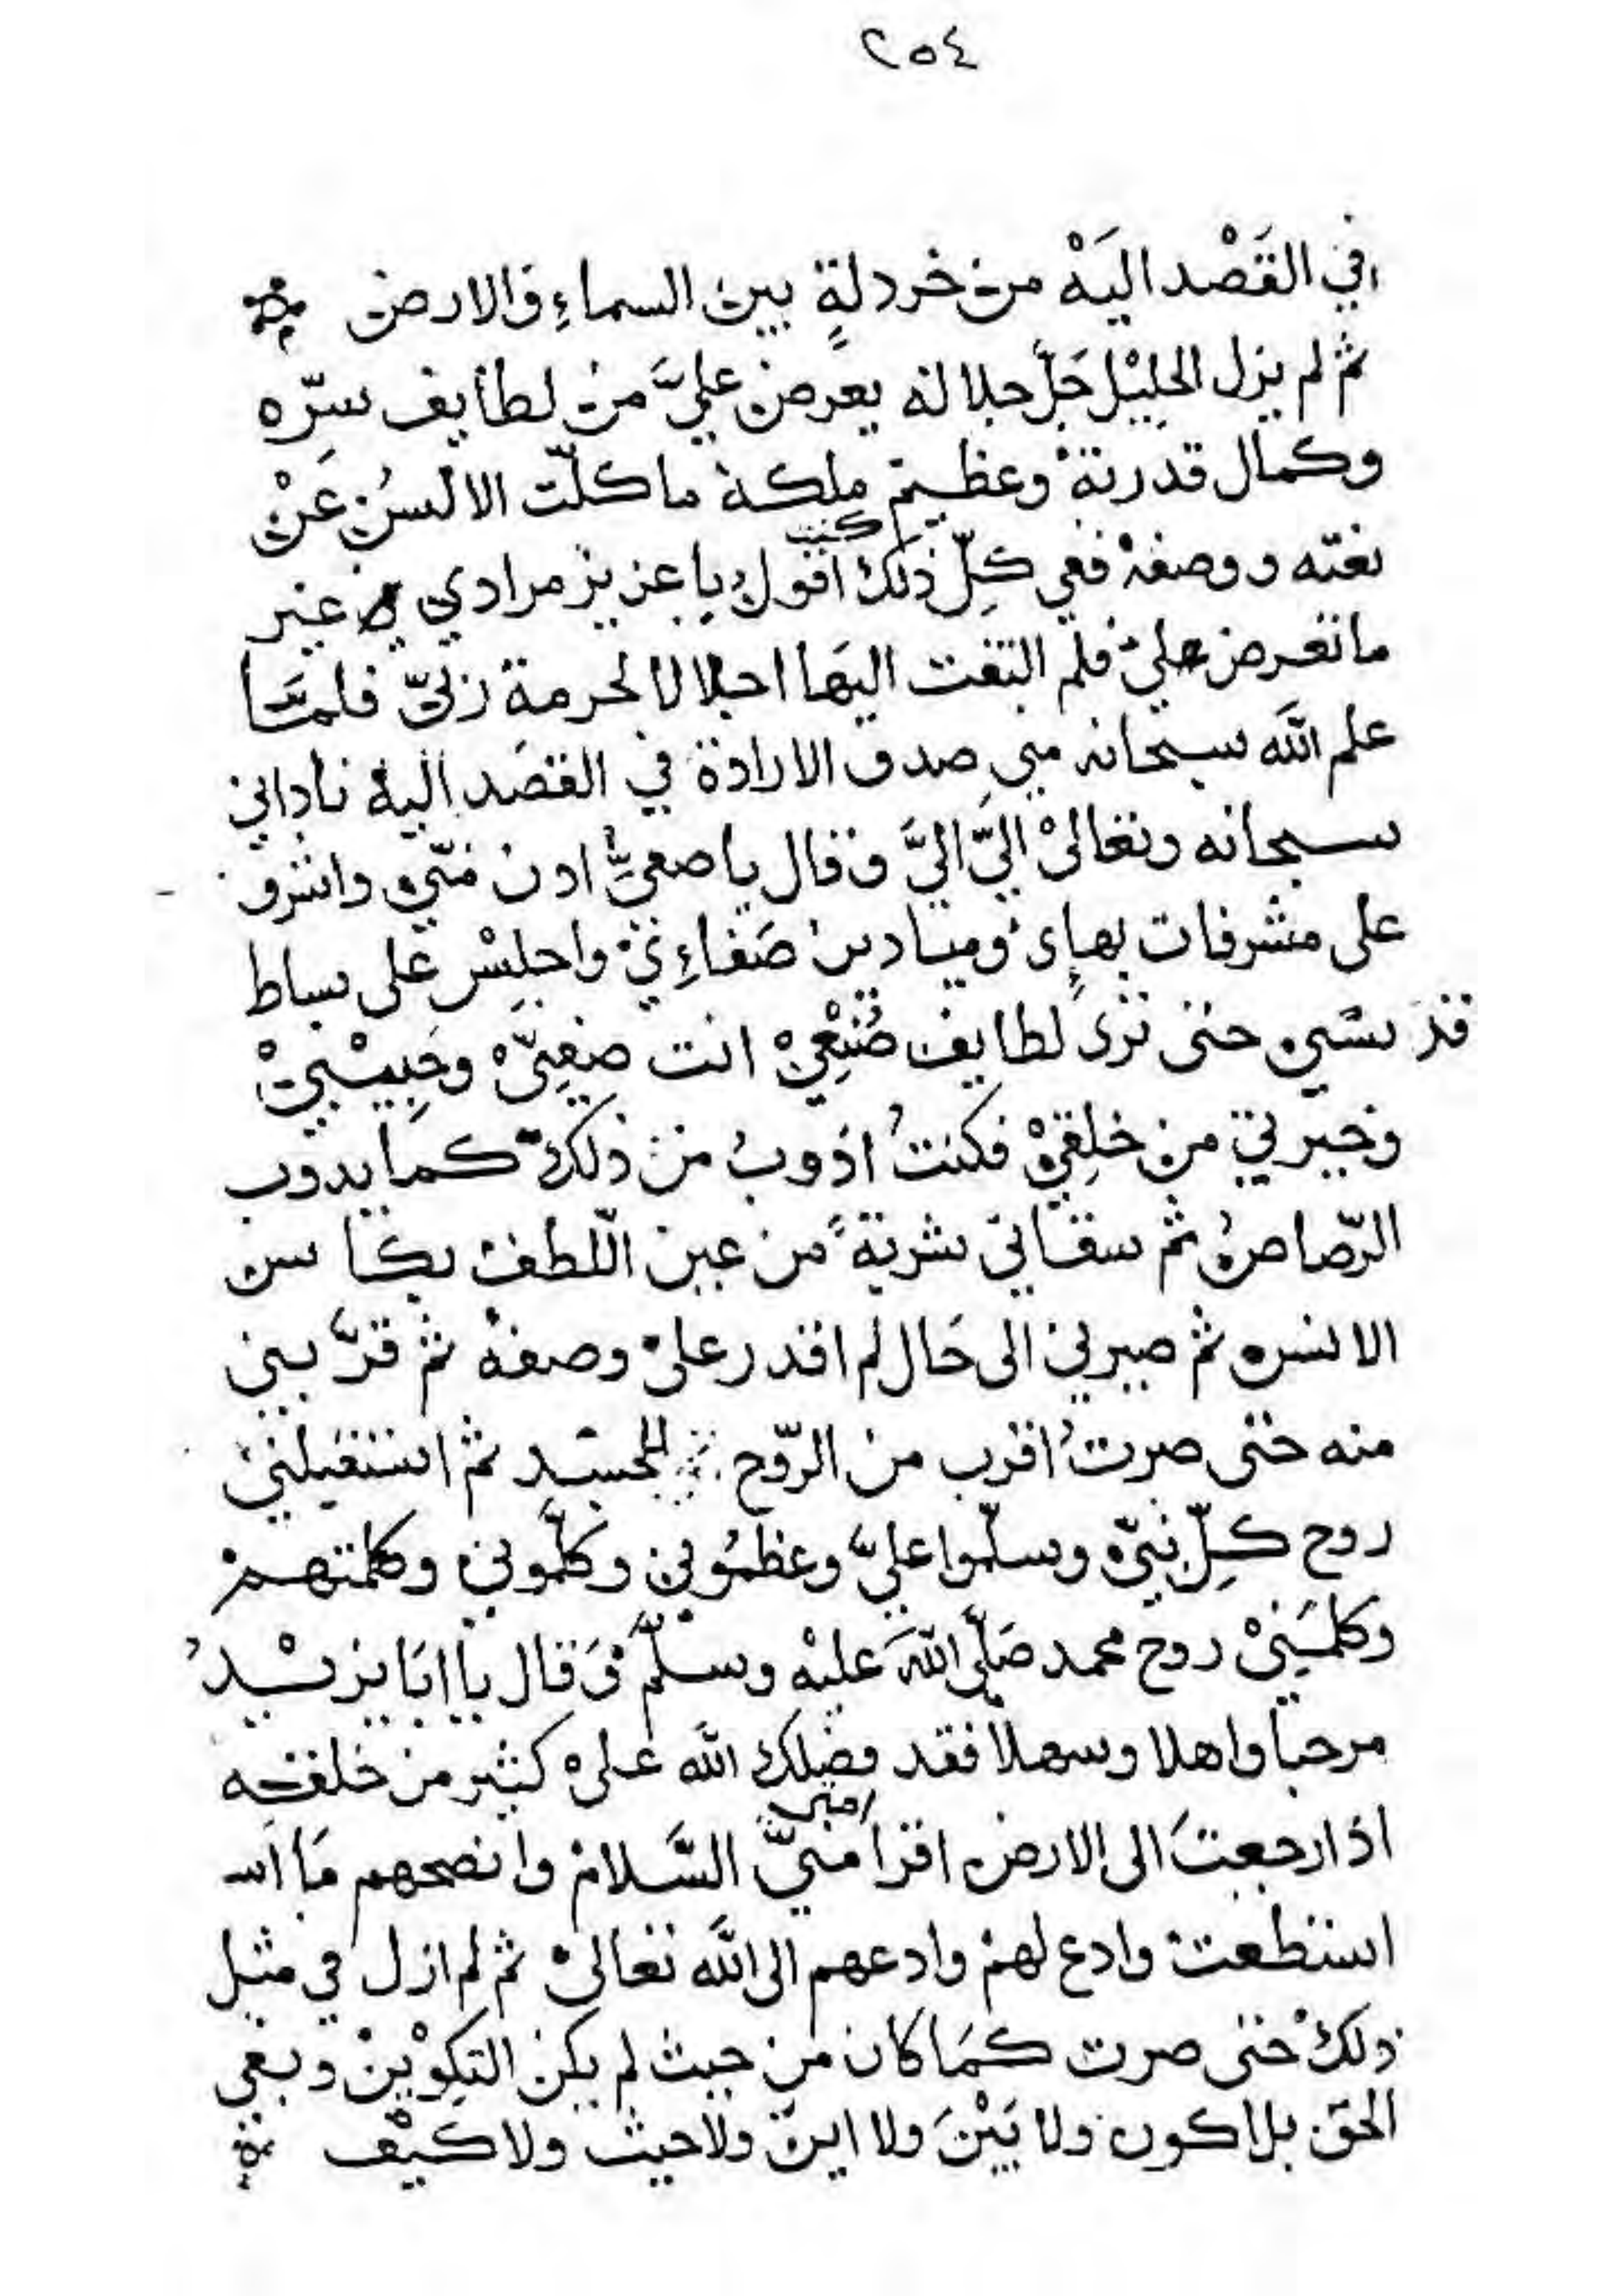 ٢٥٤
في القَصْد اليَهْ من خردلةٍ بين السماءِ والارض
ثم لم يزل الجليْل جَلّ جلاله يعرض عليَّ من لطايف سِرّه
وكمال قدرته وعظيم ملكه ما كلّت الالسُن عَنْ
نعته ووصفه ففي كلِّ ذلك كنت اقول يا عزيز مرادي في غير
ما تعرض عليّ فلم التفت اليها اجلالا لحرمة ربّي فلمّا
علم اللّه سبحانه مني صدق الارادة في القصَد اليه ناداني
سبحانه وتعالىْ اليّ اليَّ وقال يا صفيّ ادن منّي واشرف
على مشرفات بهاءِي وميادين ضَياءِيْ واجلِسْ على بساط
قدسي حتى ترى لطايف صُنْعِيْ انت صفِيّ وحَبِيْبِيْ
وخيرتي من خلقِيْ فكنتُ اذوبُ من ذلك كما يذوب
الرّصاصُ ثم سقاني شربةً من عين اللّطف بكاس
الانس ثم صيرني الى حَال لم اقدر علىْ وصفه ثم قرّبني
منه حتى صرتُ اقرب من الرّوح للجسَد ثم استقبلنيْ
روح كلِّ نبيّ وسلّموا عليّ وعظمُوني وكلّموني وكلمتهمْ
وكلمَنِيْ روح محمد صَلّى اللّهَ عليْه وسلّم وَقال يا ابَا يزيْدُ
مرحبا واهلا وسهلا فقد فضلك اللّه علىْ كثير من خلقه
اذا رجعتَ الى الارض اقرا امتي منيّ السَّلام وانصحهم مَا اس
استطعت وادع لهم وادعهم الى اللّه تعالىْ ثم لم ازل في مثل
ذلك حتى صرت كمَا كان من حيث لم يكن التكوْين وبقي
الحق بلا كون ولا بَيْنَ ولا اين ولا حيث ولا كَيْف